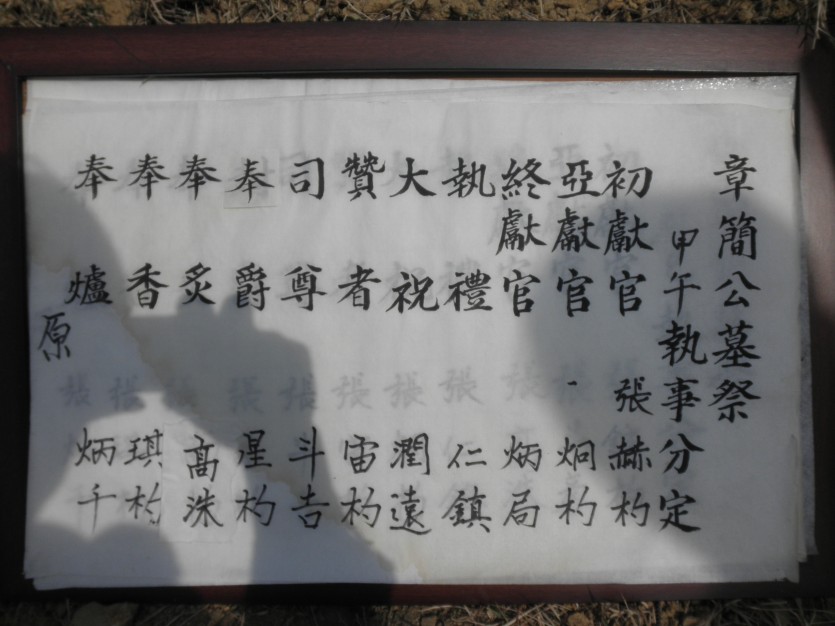 章簡公墓祭
甲午執事分定
初獻官 張赫杓
亞獻官 炯杓
終獻官 炳局
執禮 仁鎮
大祝 潤遠
贊者 宙杓
司尊 斗吉
奉爵 星杓
奉炙 高洙
奉香 琪杓
奉爐 炳千
原